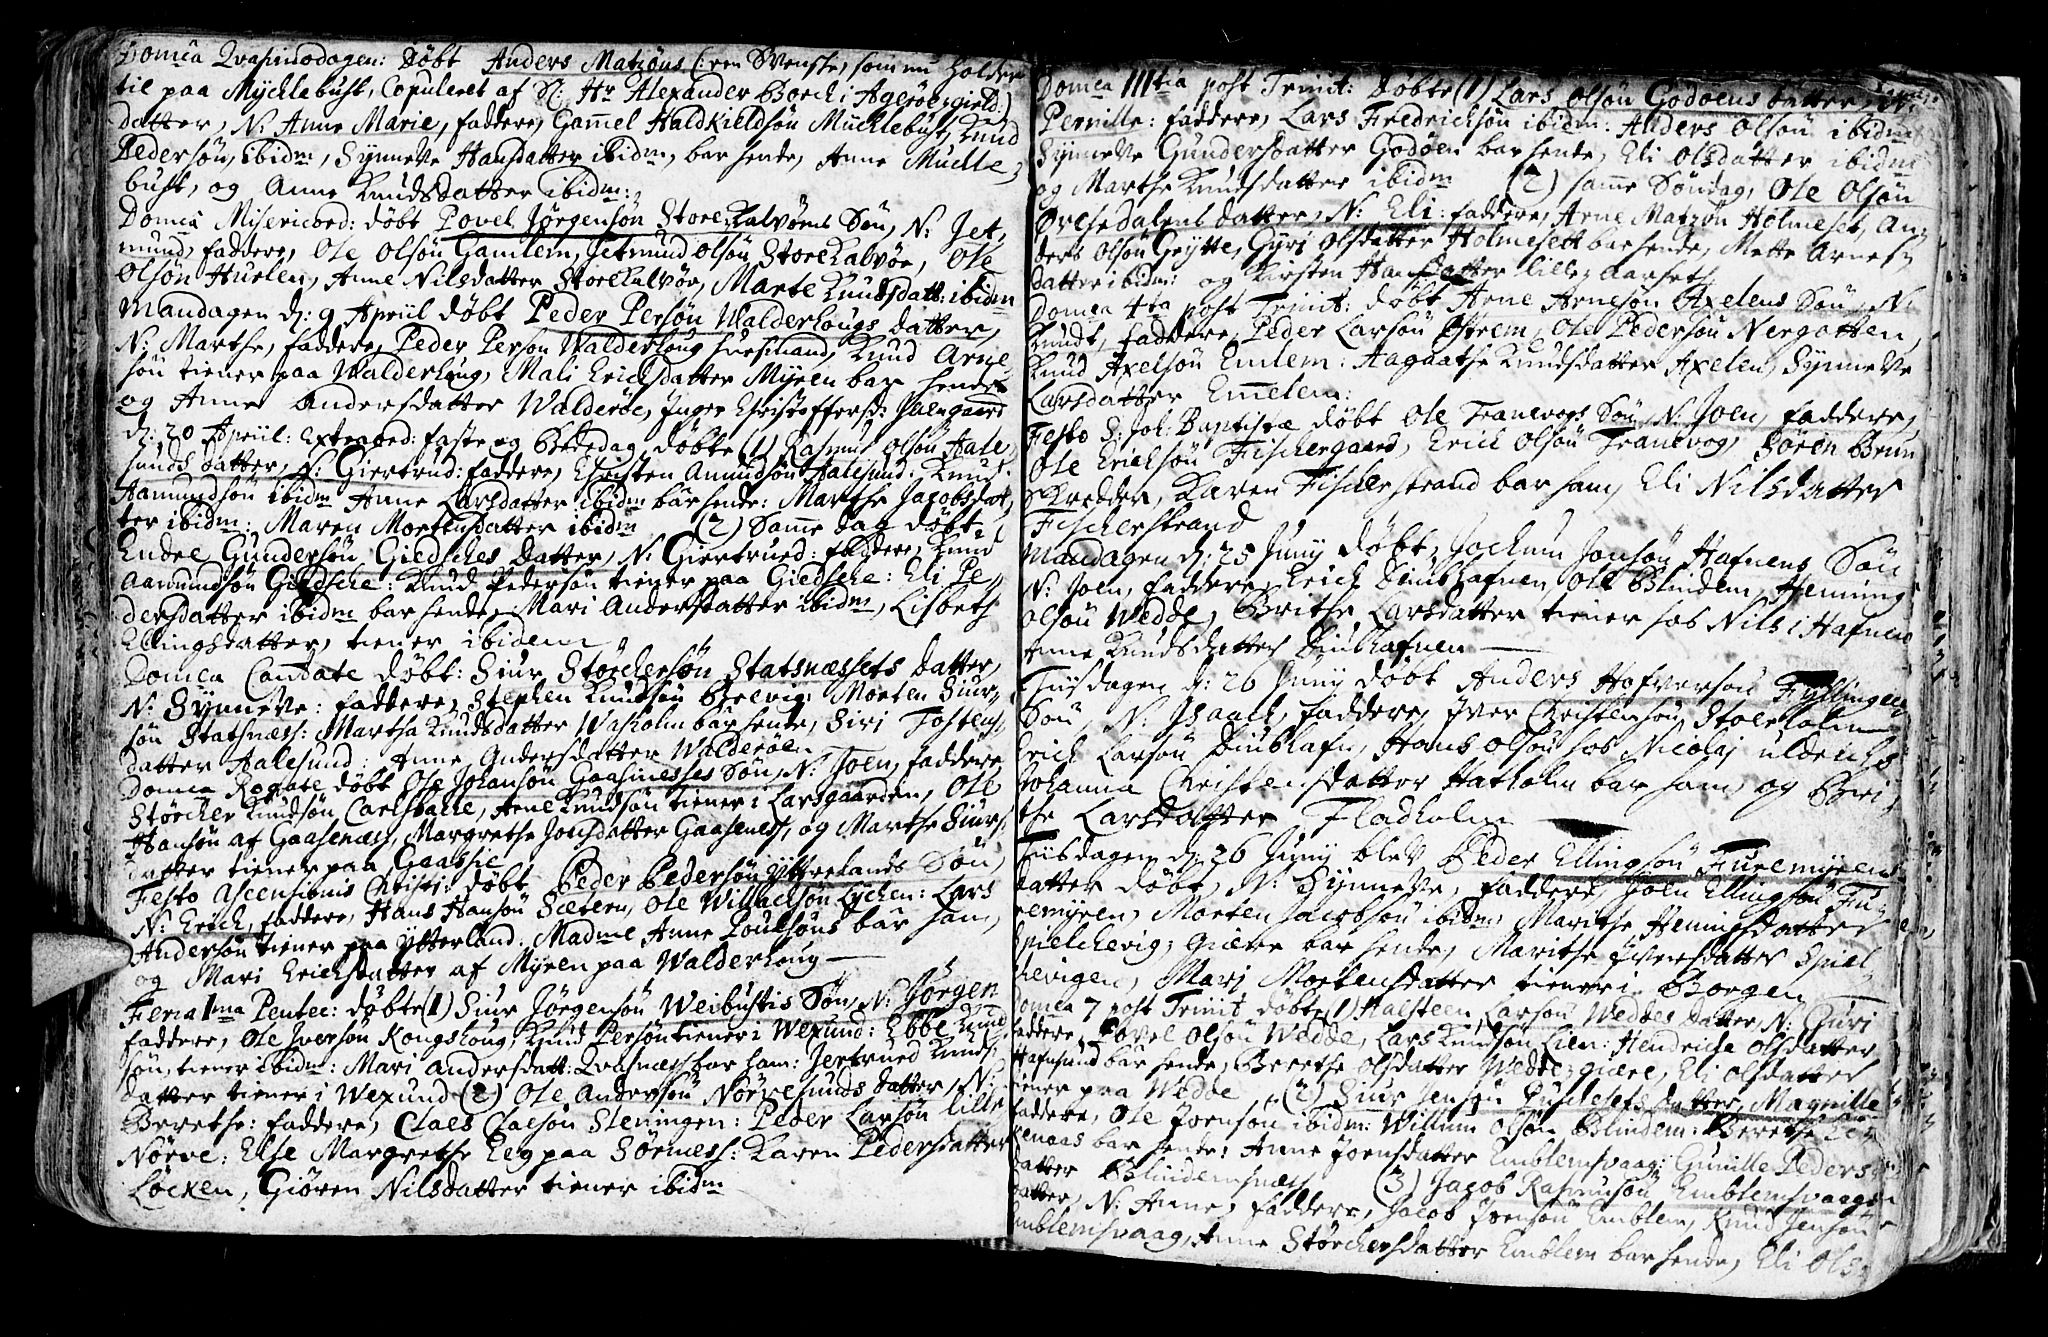 Domca Qvasimodogen: Døbt Anders Matzøns (: een Svenske, som nu holder
til paa Mycklebust, Copuleret af Sl: Hr Alexander Borch i Agerøe gield)
datter, N: Anne Marie, faddere, Gam̄el Haldkieldsøn Mucklebust, Knud
Pedersøn, ibidm, Synneve Hansdatter ibidm, bar hende, Anne Muckle
bust, og Anne Knudsdatter ibidm:
Domca Misericord: døbt Povel Jørgensøn Store Kalvøens Søn, N: Jet,
mund, faddere, Ole Olsøn Gamlem, Jetmund Olsøn StoreKalvøe, Ole
Olsøn Huelen, Anne Nilsdatter StoreKalvøe, Marte Knudsdatt: ibidm
Mandagen d: 9 Apriil døbt Peder Persøn Walderhougs datter,
N: Marthe, faddere, Peder Person Walderhoug huusmand, Knud Arne,
søn tiener paa Walderhoug, Mali Erichsdatter Myren bar hende
og Anne Andersdatter Walderøe, Inger Christoffersd:
d: 20 Apriil: Extraord: faste og Bededag døbte (1) Rasmus Olsøn Aale,
sunds datter, N: Giertrud: faddere, Christen Amundsøn Aalesund: Knud
Aamundsøn ibidm Anne Larsdatter ibidm bar hende: Marthe Jacobsdat,
ter ibidm: Maren Mortensdatter ibidm (2) Sam̄e dag døbt
Endre Gundersøn Giedsches datter, N: Giertrued: faddere, Knud
Aamundsøn Giedsche: Knud Pedersøn tiener paa Giedsche: Eli Pe,
dersdatter ibidm bar hende, Mari Andersdatter ibidm, Lisbeth
Ellingsdatter, tiener ibidem
Domca Cantate døbt: Siur Størchersøn Statsnæssets datter,
N: Synneve: faddere, Stephen Knudsøn Brevig: Morten Siur,
søn Statsnæss: Martha Knudsdatter Washolm bar hende, Siri Tosten,
datter Aalesund: Anne Andersdatter Walderøen
Domca Rogate døbt Ole Johansøn Gaasnesses Søn, N: Joen, faddere
Størcher Knudsøn, Carlsballe, Arne Knudsøn tiener i Larsgaarden, Ole
Hansøn af Gaasenæss, Margrethe Jonsdatter Gaaseness, og Marthe Siurs,
datter tiener paa
Festo Ascensionis Christi: døbt Peder Pedersøn Ytterlands Søn,
N: Erich, faddere, Hans Hansøn Sætern, Ole Willachsøn Lychen: Lars
Andersøn tiener paa Ytterland: Madme Anne Poulsøns bar ham,
og Mari Erichsdatter af Myren paa Walderhoug
Feria 1ma Pentec: døbte (1) Siur Jørgensøn Weibustis Søn, N: Jørgen
faddere, Ole Iversøn Kongshoug, Knud Persøn tiener i Wexund: Ebbe Knud
søn, tiener ibidm: Mari Andersdatt: Qvasnæss bar ham: Jertrued Knuds,
datter tiener i Wexund (2) Ole Andersøn Nørvesunds datter, N:
Berethe: faddere, Claes Claesøn Steningen: Peder Larsøn lille
Nørve: Else Margrethe Eeg paa Sørness: Karen Pedersdatter
Løcken, Giøren Nilsdatter tiener ibidm
Domca IIItia post Trinit: døbte (1) Lars Olsøn Godøens datter, N:
Pernille: faddere, Lars Fredricksøn ibidm: Anders Olsøn ibidm
Synneve Gundersdatter Godøen bar hende, Eli Olsdatter ibidm
og Marthe Knudsdatter ibidm (2) sam̄e Søndag, Ole Olsøn
Ørchedalens datter, N: Eli: faddere, Arne Matzøn Holmeset, An,
ders Olsøn Grytte, Gyri Olsdatter Holmesett bar hende, Mette Arnes,
datter ibidm: og Kirsten Hansdatter lille Aarseth
Domca 4ta post Trinit: døbt Arne Arnesøn Axelens Søn, N:
Knudt, faddere, Peder Larsøn Østrem, Ole Pedersøn Nergatten,
Knud Axelsøn Emlem: Aagaathe Knudsdatter Axelen, Synneve
Larsdatter Em̄elem:
Festo S: Joh: Baptistæ døbt Ole Tranevogs Søn, N: Joen, faddere,
Ole Ericksøn Fischergaard, Erich Olsøn Tranevog, Søren Brun
Skredder, Karen Fischerstrand bar ham, Eli Nilsdatter
Fischerstrand
Mandagen d: 25 Juny døbt, Jochum Jonsøn Hafnens Søn
N: Joen, faddere, Erich Diubhafnen, Ole Blindem, Henning
Olsøn Wedde, Brithe Larsdatter tiener hos Nils i Hafnen
Anne Knudsdatter Diubhafnen
Tiisdagen d: 26 Juny døbt Anders Hafversøn Fyllingen
Søn, N: Isaach, faddere, Iver Christensøn Stoerholm
Erich Larsøn Diubhafn, Hans Olsøn hos Nicolaj Uldrichs
Johanna Christensdatter Hatholm bar ham, og Bri,
the Larsdatter Fladholm
Tiisdagen d: 26 Juny blev Peder Ellingsøn Furemyrens
datter døbt, N: Synneve, faddere, Joen Ellingsøn Fu,
remyren, Morten Jacobsøn ibidm: Marithe Hemingsdatter
Spielchevig, giære bar hende, Marithe Iversdatter Spiel,
chevigen, Mari Mortensdatter tiener i Borgen
Domca 7 post Trinit døbte, (1) Halsteen Larsøn Weddes datter, N: Guri
faddere, Povel Olsøn Wedde, Lars Knudsøn Lien: Hendriche Olsdatter
Hafnsund bar hende, Berethe Olsdatter Wedde, giære, Eli Olsdatter
tiener paa Wedde (2) Siur Jensøn datter, Magnille
faddere, Ole Joensøn ibidm: Willum Olsøn Blindem: Berethe
bar hende: Anne Joensdatter Emblemsvaag: Gunille Peders
datter Blindemsnæss (3) Jacob Rasmusøn Emblemsvaagen
datter, N: Anne, faddere, Jacob Joensøn Emblem, Knud Jensøn
Emblemsvaag, Anne Størchersdatter Emblem bar hende, Eli Ols,